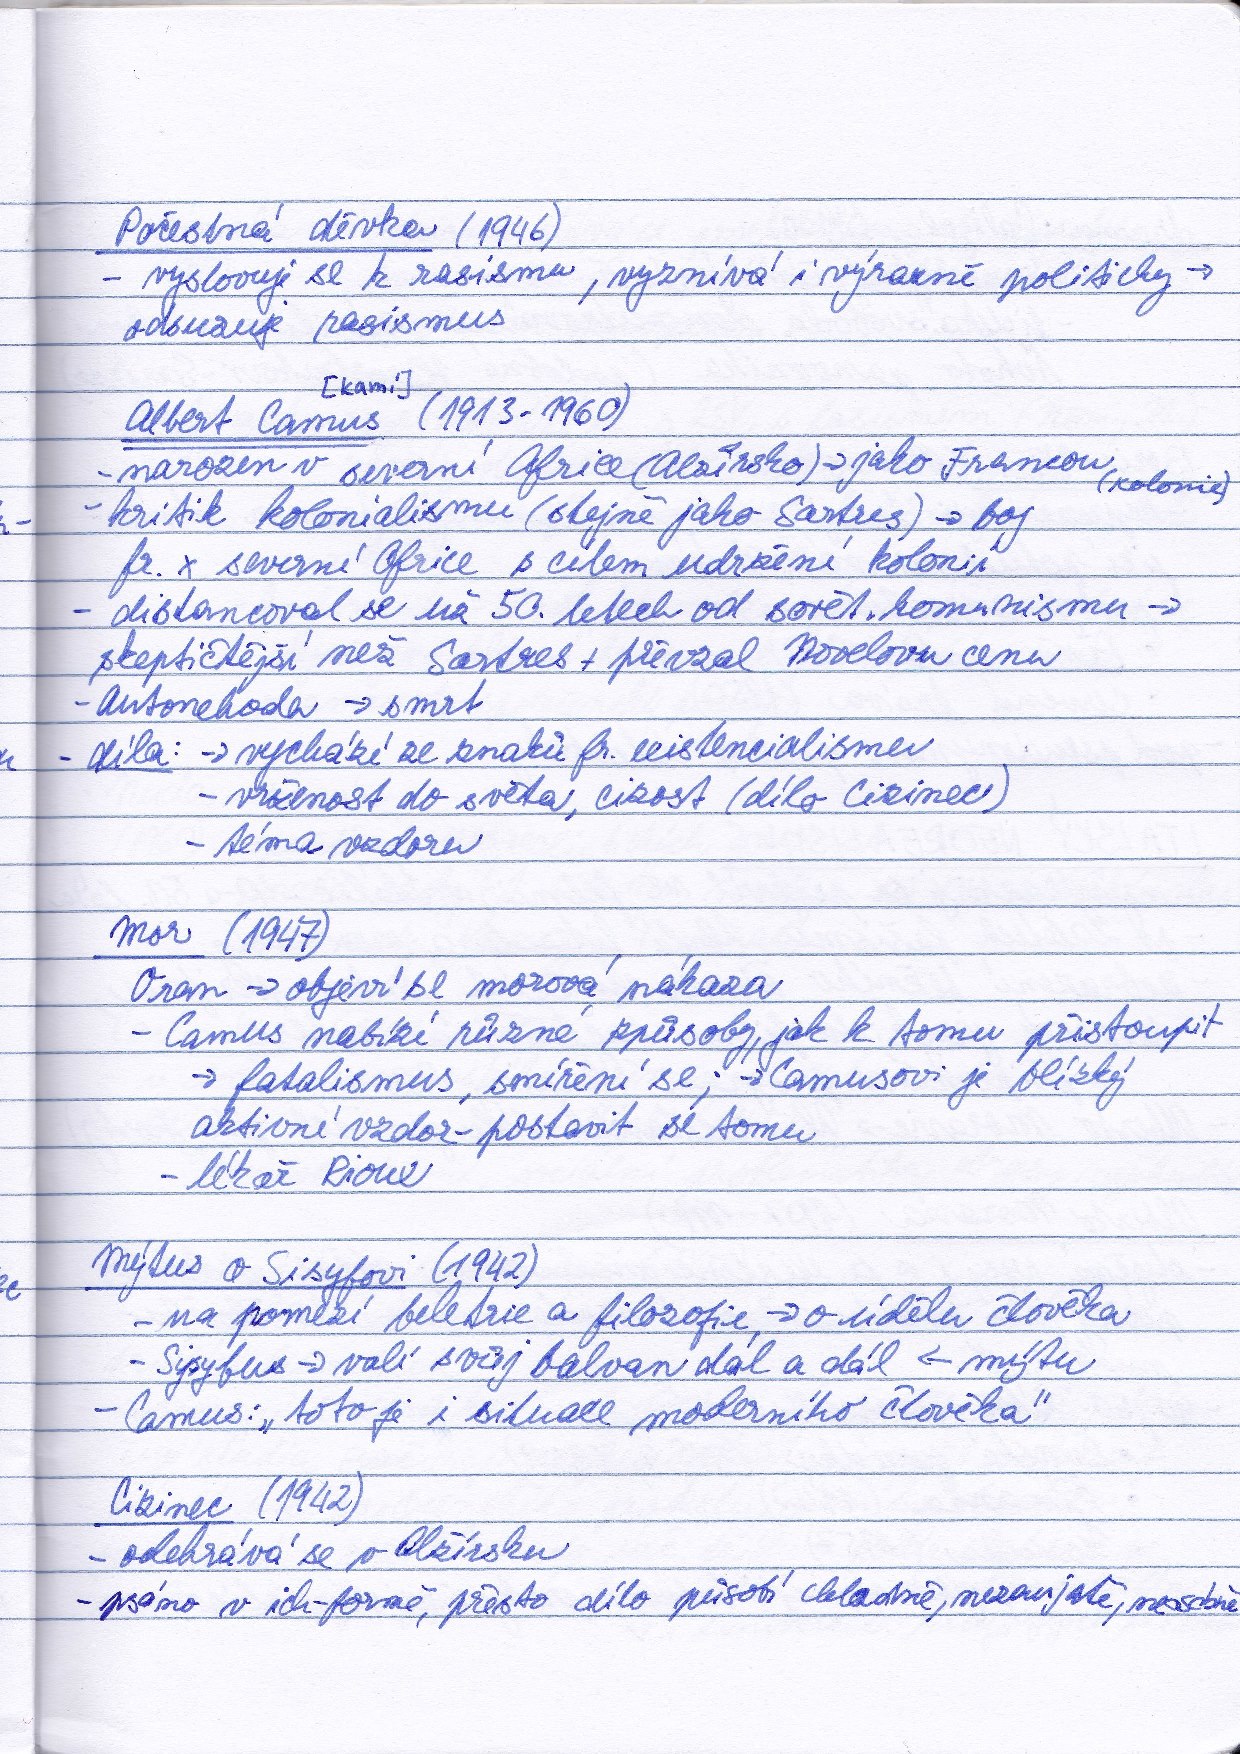 Počestná děvka (1946)
- vyslovuje se k rasismu, vyznívá i výrazně politicky →
odsuzuje rasismus
[kamí]
Albert Camus (1913-1960)
- narozen v severní Africe (Alžírsko) → jako Francouz
(kolonie)
- kritik kolonialismu (stejně jako Sartres) → boj
fr. x severní Africe s cílem udržení kolonií
- distancoval se už 50. letech od sovět. komunismu →
skeptičtější než Sartres + převzal Novelovu cenu
- Autonehoda → smrt
- díla: → vychází ze znaků fr. existencialismu
- vrženost do světa, cizost (dílo Cizinec)
- téma vzdoru
Mor (1947)
Oran → objeví se morová nákaza
- Camus nabízí různé způsoby, jak k tomu přistoupit
→ fatalismus, smíření se; → Camusovi je blízký
aktivní vzdor - postavit se tomu
- lékař Rioux
Mýtus o Sisyfovi (1942)
- na pomezí beletrie a filozofie → o údělu člověka
- Sisyfus → valí svůj balvan dál a dál ← mýtu
- Camus: „toto je i situace moderního člověka"
Cizinec (1942)
- odehrává se v Alžírsku
- psáno v ich-formě, přesto dílo působí chladně, nezaujatě, neosobně